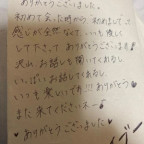 ありがとうございました。
初めて会った時から、初めましての
感じが全然なくて、いつも優しく
して下さって ありがとうございます
沢山、お話しも聞いてくれるし
いっぱいお話してくれるし
いつも楽しいです!!! ありがとう♥
また来てくださいねー
♥ありがとうございました♥